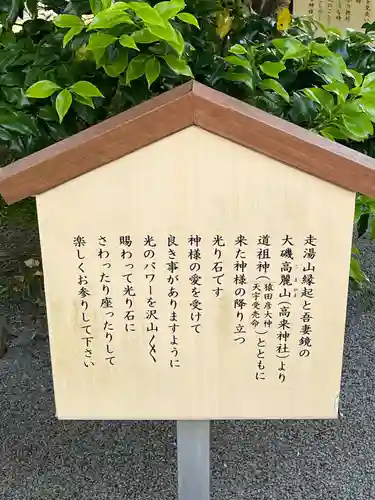 走湯山縁起と吾妻鏡の
大磯高麗山(高来神社)より
道祖神(猿田彦大神 天宇受売命)とともに
来た神様の降り立つ
光り石です
神様の愛を受けて
良き事がありますように
光のパワーを沢山〱
賜わって光り石に
さわったり座ったりして
楽しくお参りして下さい